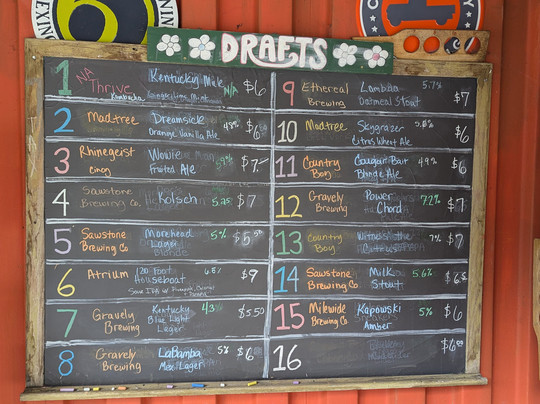 DRAFTS
1 NA Thrive Kentucky Mule N/A $6
Kombucha Ginger, Lime, Mint
2 Madtree Dreamsick $6
Brewing Orange Vanilla Ale
3 Rhinegeist Wowie $7
Cincy Fruited Ale
4 Sawstone Kolsch $7
Brewing Co.
5 Sawstone Morehead 5% $5
Brewing Co Lamer
Blonde
6 Atrium 120 Foot $9
Houseboat
Sour IPA w/
7 Gravely Kentucky 4.3 $5.50
Brewing Blue Light
Lager
8 Gravely LaBamba 5% $6
Brewing Mex. Lager
9 Ethereal Lambda 5.7% $7
Brewing Oatmeal Stout
10 Madtree Skygrazer $6
Citrus Wheat Ale
11 Country Cougar Bait 4.9% $6
Boy Blonde Ale
12 Gravely Power 7.2% $7
Brewing Chord
13 Country Witness the 7% $7
Boy
14 Sawstone Milk 5.6% $6
Brewing Co. Stout
15 Milewide Kapowski 5% $6
Brewing Co. Amber
16